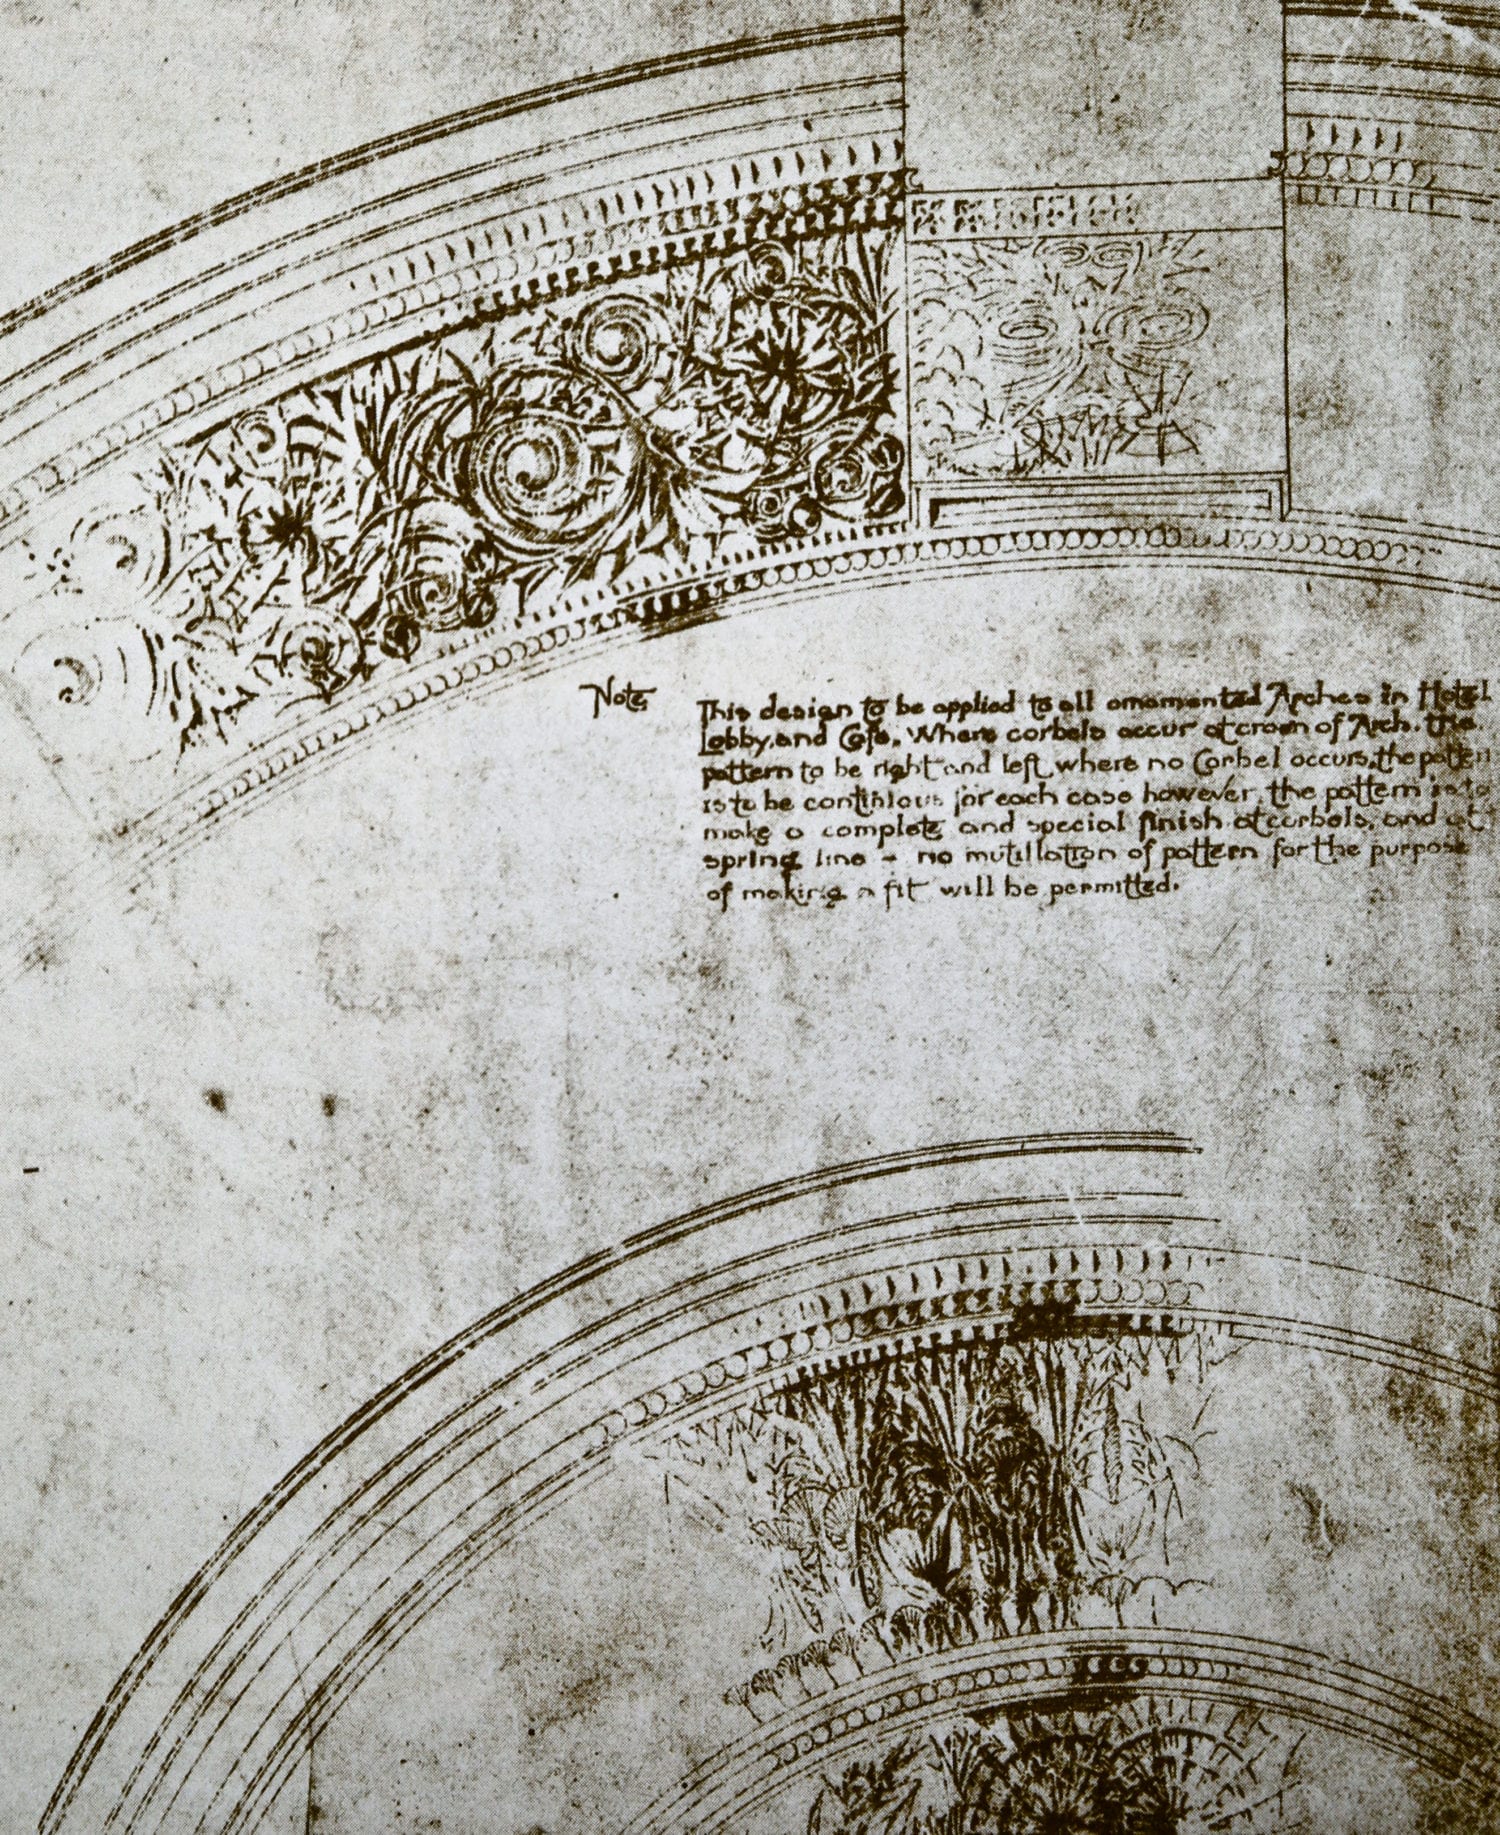 Note
This design to be applied to all ornamented Arches in Hotel
Lobby, and Cafe. Where corbels occur at crown of Arch. the
pattern to be right and left, where no Corbel occurs, the pattern
is to be continious for each case however, the pattern is to
make a complete and special finish at corbels, and at
spring line - no mutillation of pattern for the purpose
of making a fit will be permitted.